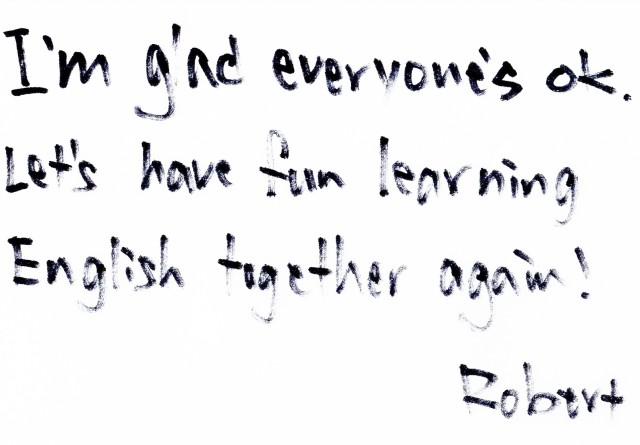 I'm glad everyone's ok.
Let's have fun learning
English together again!
Robert